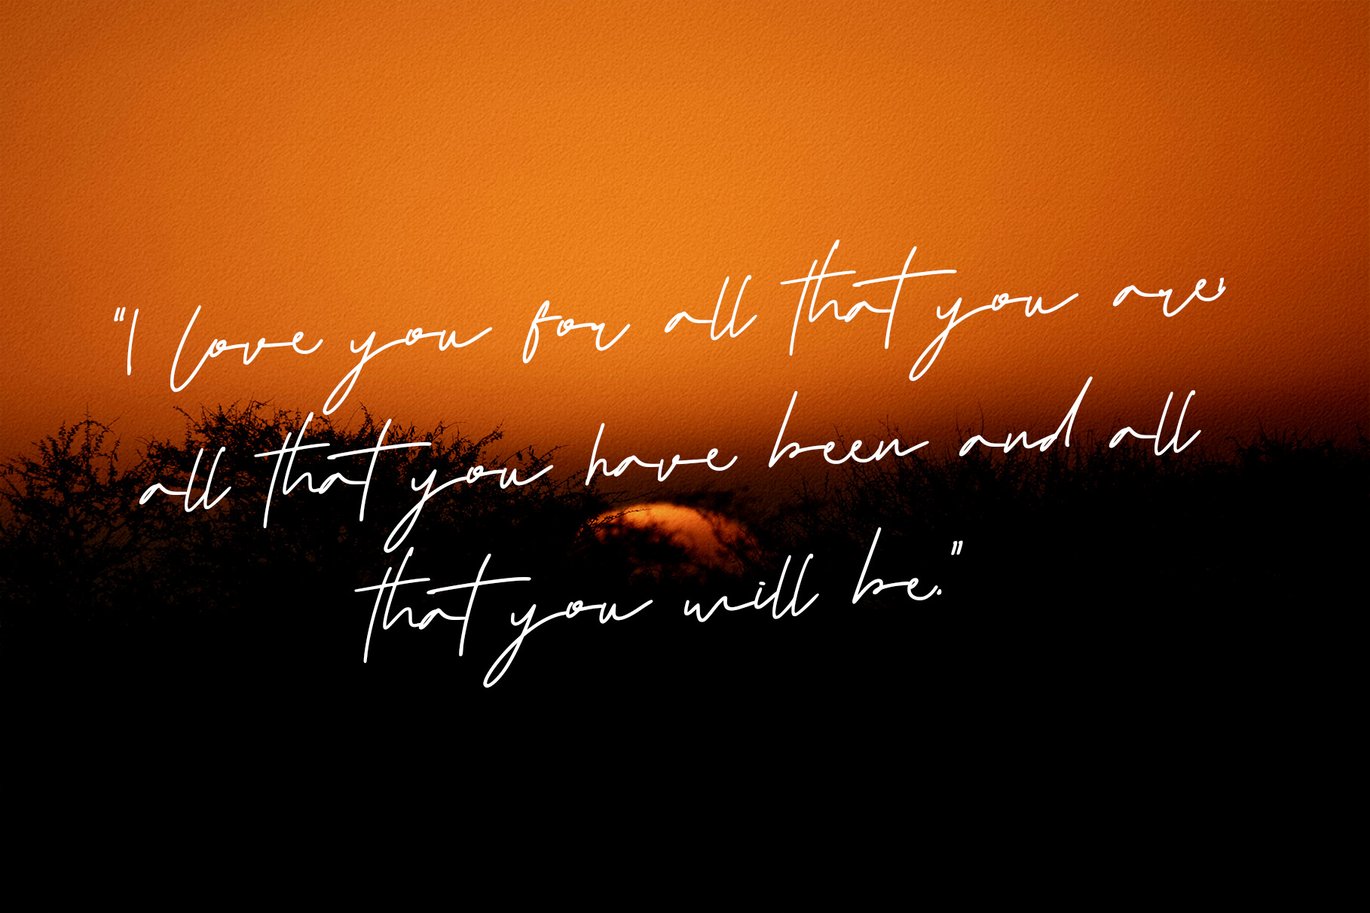 "I love you for all that you are,
all that you have been and all
that you will be."